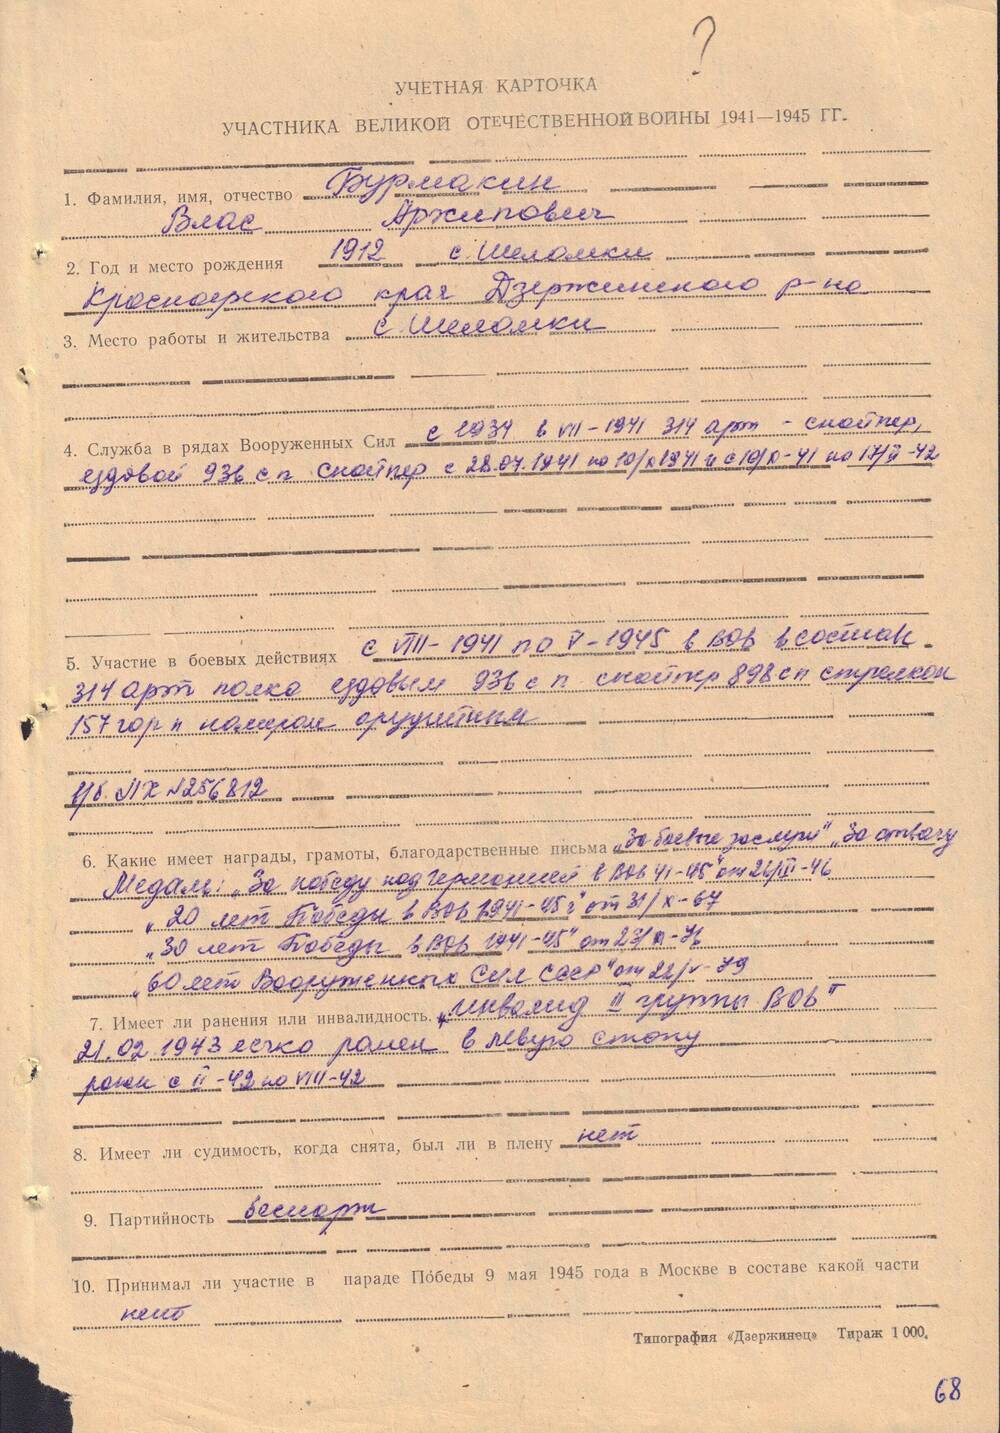 ?
УЧЕТНАЯ КАРТОЧКА
УЧАСТНИКА ВЕЛИКОЙ ОТЕЧЕСТВЕННОЙ ВОЙНЫ 1941—1945 ГГ.
1. Фамилия, имя, отчество Бурмакин
Влас Архипович
2. Год и место рождения 1912 с. Шеломки
Красноярского края Дзержинского р-на
3. Место работы и жительства с. Шеломки
4. Служба в рядах Вооруженных Сил с 1934 в VII-1941 314 арт - снайпер,
ездовой 936 с п снайпер с 28.07.1941 по 10/ 1941 и с 10/ -41 по 17/ -42
5. Участие в боевых действиях с VIII-1941 по V-1945 в ВОВ в состав
314 арт полка ездовым 936 с п снайпер 898 с п стрелком
157 гор п номером орудийным
в/б. МХ №256812
6. Какие имеет награды, грамоты, благодарственные письма „За боевые заслуги" „За отвагу
Медаль: „За победу над германией в ВОВ 41-45" от 26/III-46
„20 лет Победы в ВОВ 1941-45 г" от 31/X-67
„30 лет Победы в ВОВ 1941-45" от 23/ -76
„60 лет Вооруженных Сил СССР" от 22/V-79
7. Имеет ли ранения или инвалидность. „Инвалид II группы ВОВ"
21.02.1943 легко ранен в левую стопу
ранен с II-42 по VIII-42
8. Имеет ли судимость, когда снята, был ли в плену нет
9. Партийность беспарт
10. Принимал ли участие в параде Победы 9 мая 1945 года в Москве в составе какой части
нет
Типография «Дзержинец» Тираж 1 000.
68